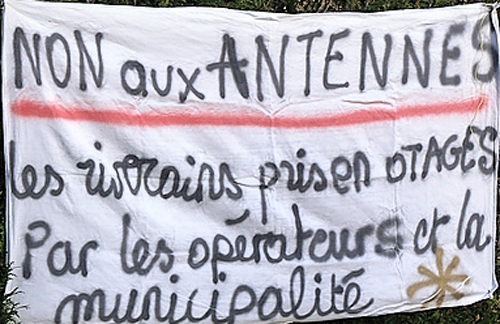 NON aux ANTENNES
Les riverains pris en OTAGES
Par les opérateurs et la
municipalité *